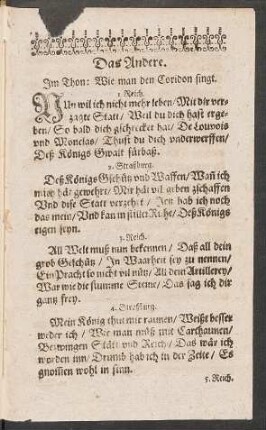 Das Andere.
Im Thon: Wie man den Coridon singt.
1. Reich.
NUn wil ich nicht mehr leben / Mit dir ver-
zagte Statt / Weil du dich hast erge-
ben / So bald dich gschrecket hat / De Louvois
und Monclas / Thust du dich underwerffen /
Deß Königs Gwalt fürbaß.
2. Straßburg.
Deß Königs Gschütz und Waffen / Wañ ich
mich hät gewehrt / Mir hät vil geben zschaffen
Und dise Statt verzehrt / Jetz hab ich noch
das mein / Und kan in stiller Ruhe / Deß Königs
eigen seyn.
3. Reich.
All Welt muß nun bekennen / Daß all dein
grob Geschütz / In Waarheit sey zu nennen /
Ein Pracht so nicht vil nütz / All dein Artillerey /
War wie die stumme Steine / Das sag ich dir
gantz frey.
4. Straßburg.
Mein König thut mir raumen / Weißt besser
weder ich / Wie man müß mit Carthaunen /
Bezwingen Stätt und Reich / Das wär ich
worden inn / Drumb hab ich in der Zeite / Es
gnoissen wohl in sinn.
5. Reich.